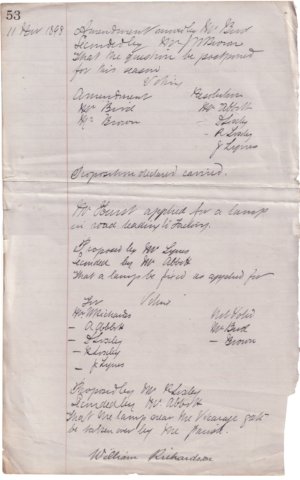 53
11 Nov 1898
Amendment moved by Mr Bird
Seconded by Mr J Brown
That the question be postponed
for this season
Voting
Amendment Resolution
Mr Bird Mr Abbott
Mr Brown - D Lisley
- R Lisley
J Lynes
Proposition declared carried.
Mr Hurst applied for a lamp
in road leading to Factory.
Proposed by Mr Lynes
Seconded by Mr Abbott
That a lamp be fixed as applied for
For
Mr W Richardson Not Voted
- A Abbott Mr Bird
- D Lisley - Brown
- R Lisley
- J Lynes
Proposed by Mr R Lisley
Seconded by Mr Abbott
That the lamp near the Vicarage gate
be taken over by the Parish.
William Richardson